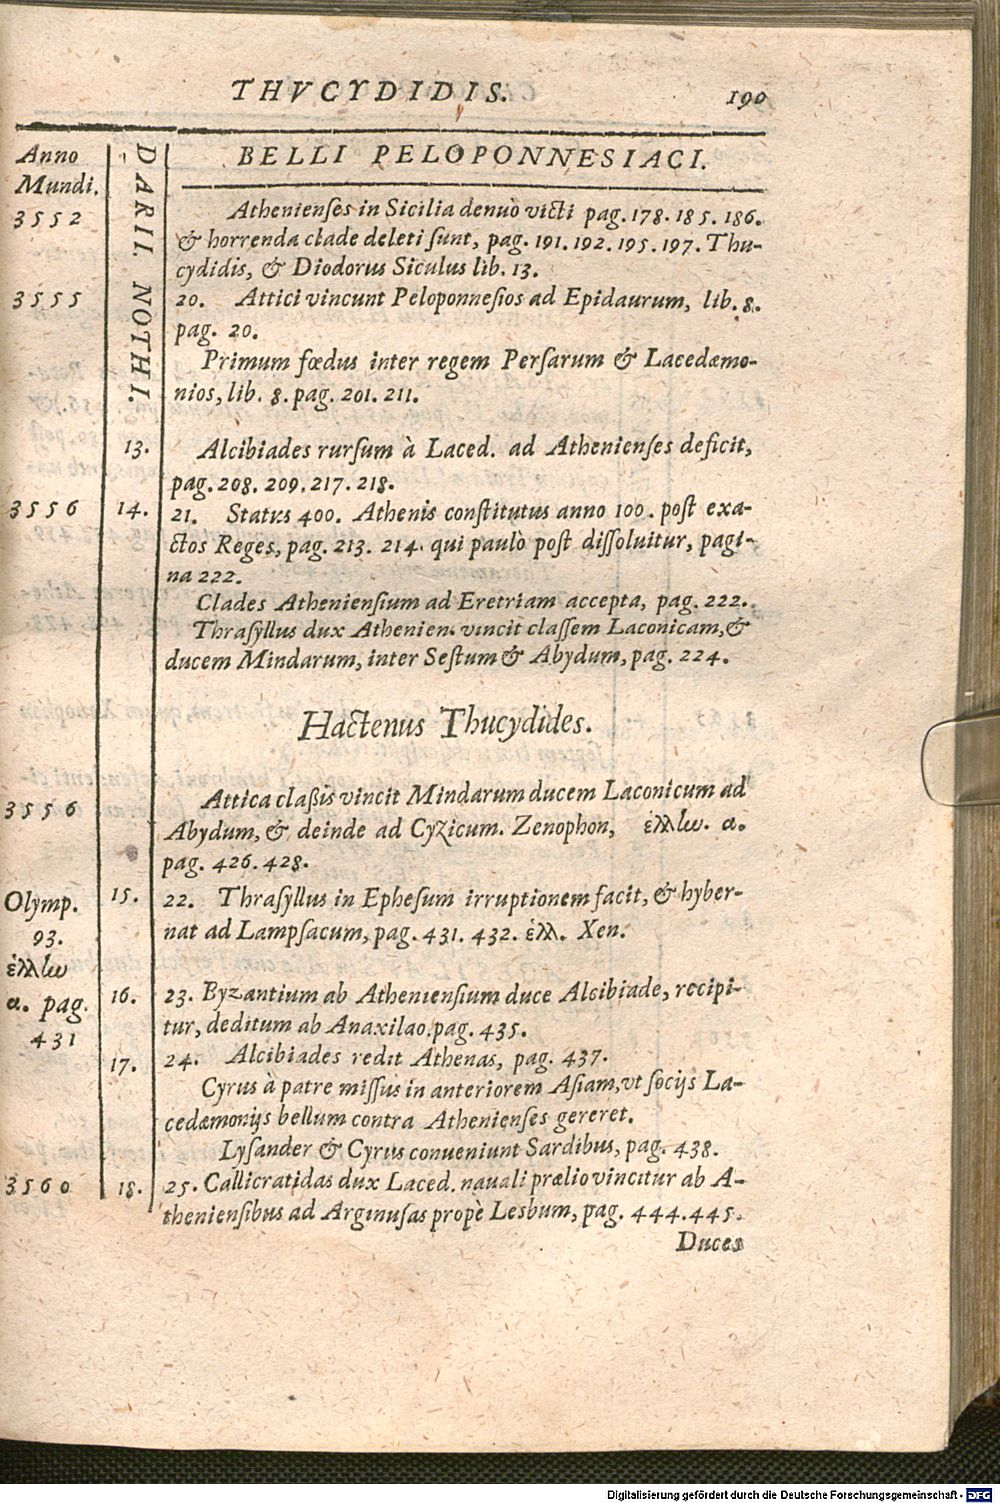 THVCYDIDIS. 190
Anno
Mundi.
DARII. NOTHI.
BELLI PELOPONNESIACI.
3552 Athenienses in Sicilia denuò victi pag. 178. 185. 186.
& horrenda clade deleti sunt, pag. 191. 192. 195. 197. Thu-
cydidis, & Diodorus Siculus lib. 13.
3555 20. Attici vincunt Peloponnesios ad Epidaurum, lib. 8.
pag. 20.
Primum fœdus inter regem Persarum & Lacedæmo-
nios, lib. 8. pag. 201. 211.
13. Alcibiades rursum à Laced. ad Athenienses deficit,
pag. 208. 209. 217. 218.
3556 14. 21. Status 400. Athenis constitutus anno 100. post exa-
ctos Reges, pag. 213. 214. qui paulò post dissoluitur, pagi-
na 222.
Clades Atheniensium ad Eretriam accepta, pag. 222.
Thrasyllus dux Athenien. vincit classem Laconicam, &
ducem Mindarum, inter Sestum & Abydum, pag. 224.
Hactenus Thucydides.
3556 Attica claßis vincit Mindarum ducem Laconicum ad
Abydum, & deinde ad Cyzicum. Zenophon, ἑλλω. α.
pag. 426. 428.
Olymp.
93.
ἑλλω
α. pag.
431
15. 22. Thrasyllus in Ephesum irruptionem facit, & hyber-
nat ad Lampsacum, pag. 431. 432. ἑλλ. Xen.
16. 23. Byzantium ab Atheniensium duce Alcibiade, recipi-
tur, deditum ab Anaxilao. pag. 435.
17. 24. Alcibiades redit Athenas, pag. 437.
Cyrus à patre missus in anteriorem Asiam, vt socijs La-
cedæmonijs bellum contra Athenienses gereret.
Lysander & Cyrus conueniunt Sardibus, pag. 438.
3560 18. 25. Callicratidas dux Laced. nauali prælio vincitur ab A-
theniensibus ad Arginusas propè Lesbum, pag. 444. 445.
Duces
Digitalisierung gefördert durch die Deutsche Forschungsgemeinschaft - DFG